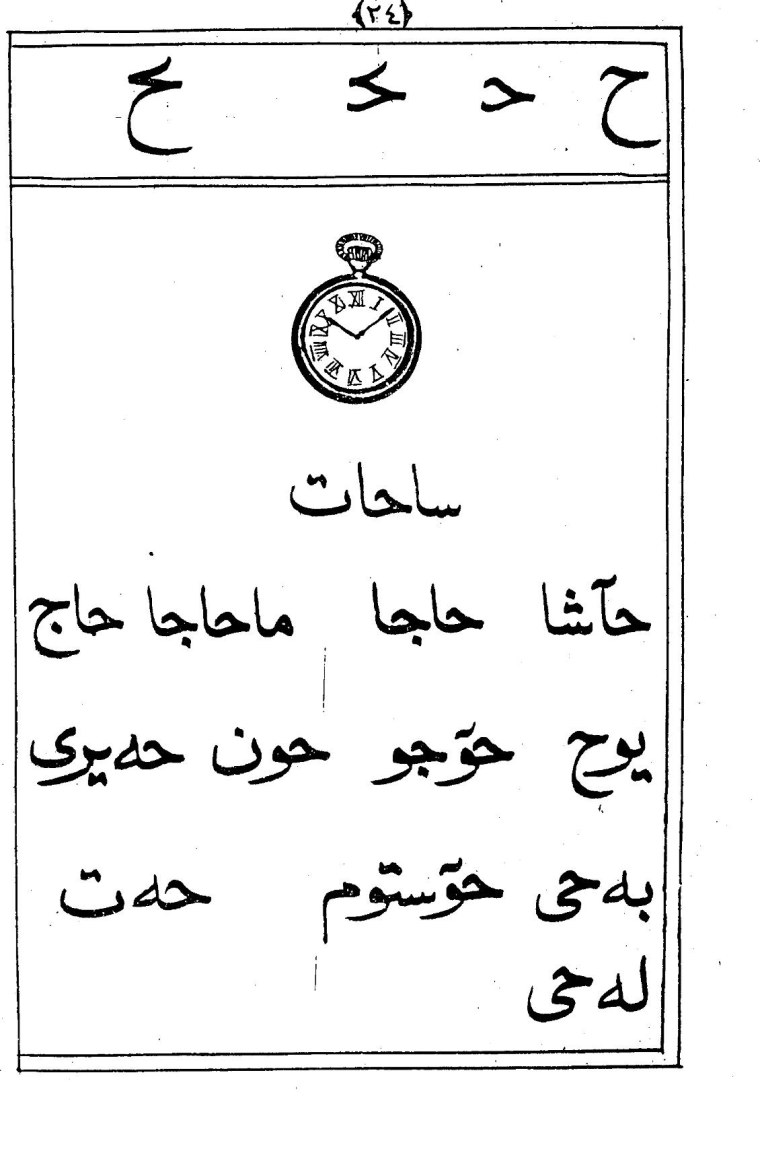 ﴿٢٤﴾
ح حـ ـحـ ـح
ساحات
حآشا حاجا ماحاجا حاج
يوح حۆجو حون حەيرى
بەحى حۆستۆم حەت
لەحى